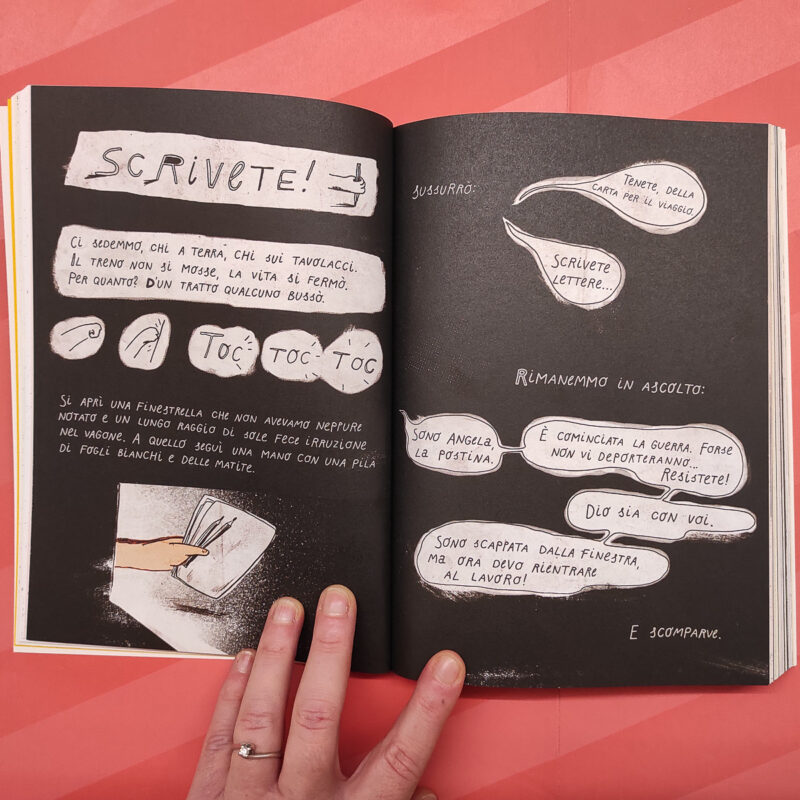 SCRIVETE!
CI SEDEMMO, CHI A TERRA, CHI SUI TAVOLACCI.
IL TRENO NON SI MOSSE, LA VITA SI FERMÒ.
PER QUANTO? D'UN TRATTO QUALCUNO BUSSÒ.
TOC TOC TOC
SI APRÌ UNA FINESTRELLA CHE NON AVEVAMO NEPPURE
NOTATO E UN LUNGO RAGGIO DI SOLE FECE IRRUZIONE
NEL VAGONE. A QUELLO SEGUÌ UNA MANO CON UNA PILA
DI FOGLI BIANCHI E DELLE MATITE.
SUSSURRÒ:
TENETE, DELLA
CARTA PER IL VIAGGIO.
SCRIVETE
LETTERE...
RIMANEMMO IN ASCOLTO:
SONO ANGELA,
LA POSTINA.
È COMINCIATA LA GUERRA. FORSE
NON VI DEPORTERANNO...
RESISTETE!
DIO SIA CON VOI.
SONO SCAPPATA DALLA FINESTRA,
MA ORA DEVO RIENTRARE
AL LAVORO!
E SCOMPARVE.